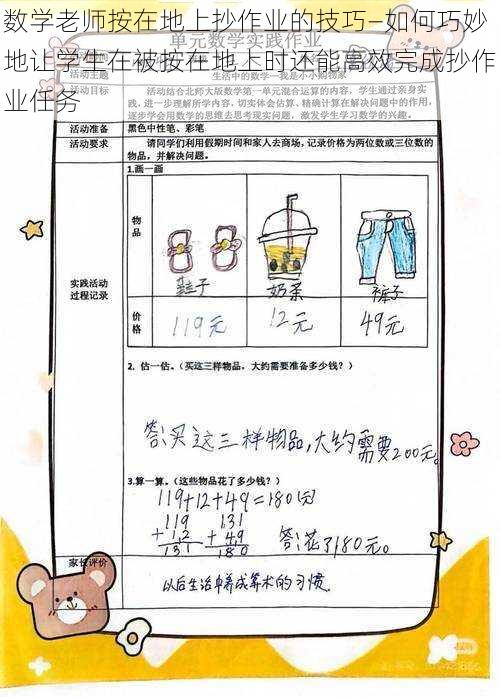 数学老师按在地上抄作业的技巧—如何巧妙
地让学生在被按在地上时还能高效完成抄作
业任务
单元数学实践作业
活动主题
生活中的数学—我是小小购物家
活动目标
活动结合北师大版数学第一单元混合运算的内容，学生通过亲身实
践，进一步理解所学内容，切实体会估算、精确计算在解决问题中的作用，
逐步学会用数学的思维去思考现实问题，激发学生学习数学的兴趣。
活动准备
黑色中性笔、彩笔
活动要求
请同学们利用假期时间和家人去商场，记录价格为两位数或三位数的
物品，并解决问题。
实践活动
过程记录
1.画一画
物品
鞋子
奶茶
裤子
价格
119元
12元
49元
2. 估一估。（买这三样物品，大约需要准备多少钱？）
答：买这三样物品，大约需要200元。
3.算一算。（这些物品花了多少钱？）
119+12+49=180（元）
119 131
+12 +49
131 180
答：花了180元。
家长评价
以后生活中养成算术的习惯.